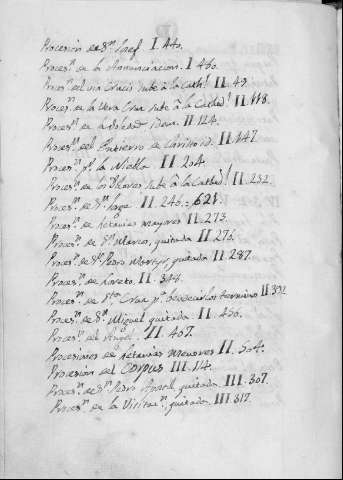 Procesion de Sn Josef I. 440.
Procesn de la Annunciacion. I 460.
Procesn del via Crucis sube â la Cathl. II. 49.
Procesn de la Vera Cruz sube â la Cathdl II. 118.
Procesn de la Soledad II. 124.
Procesn del Entierro de Christo II. 147.
Procesn pr la Niebla. II. 204.
Procesn de los sube â la Cathdl II. 232.
Procesn de Sn Jorge II. 246. = 621.
Procesn de Letanias mayores II. 273.
Procesn de Sn Marcos, quitada II. 276.
Procesn de Sn Pedro Martyr, quitada II. 287.
Procesn de Loreto. II. 344.
Procesn de Sta Cruz pa bendecir los terminos II. 392.
Procesn de Sn Miguel quitada. II. 436.
Procesn de II. 467.
Procesiones de Letanias menores II. 504.
Procesion del Corpus III. 114.
Procesn de Sn Pedro Apostl quitada. III. 307.
Procesn de la Visitan, quitada. III. 317.